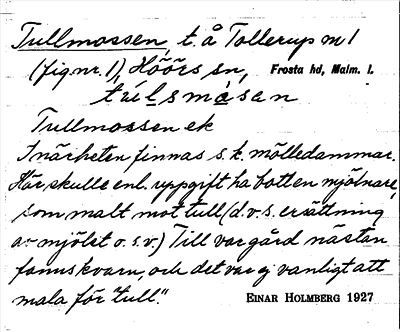 Tullmossen, t. å Tollerup m 1
(fig nr. 1), Höörs sn, Frosta hd, Malm. l.
Tullmossen ek
I närheten finnas s. k. mölledammar.
Här skulle enl. uppgift ha bott en mjölnare,
som malt mot tull (d.v.s. ersättning
av mjölet o.s.v.) Till var gård nästan
fanns kvarn, och det var ej vanligt att
mala för "tull".
EINAR HOLMBERG 1927